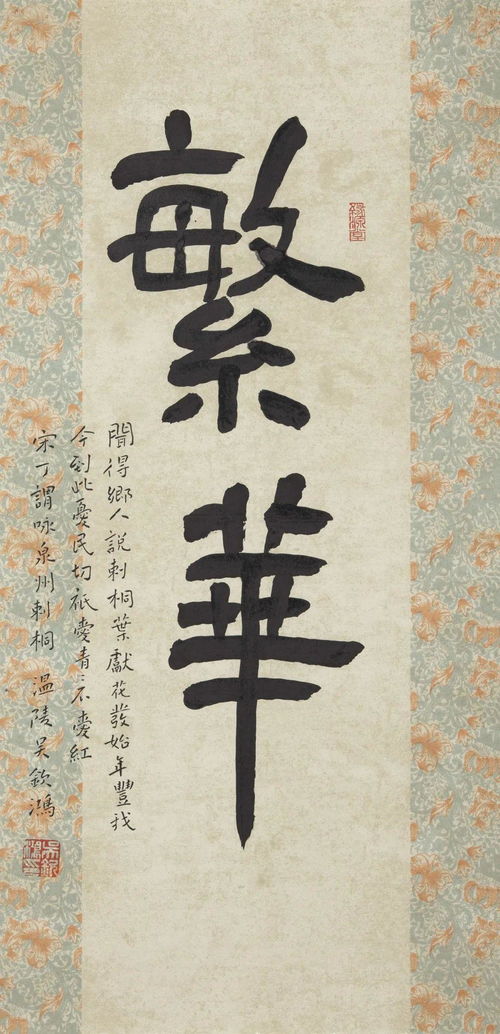 繁華
聞得鄉人說刺桐葉獻花發始年豐我
今到此憂民切祇愛青〻不愛紅
宋丁謂咏泉州刺桐 溫陵吳欽鴻
吳欽鴻印